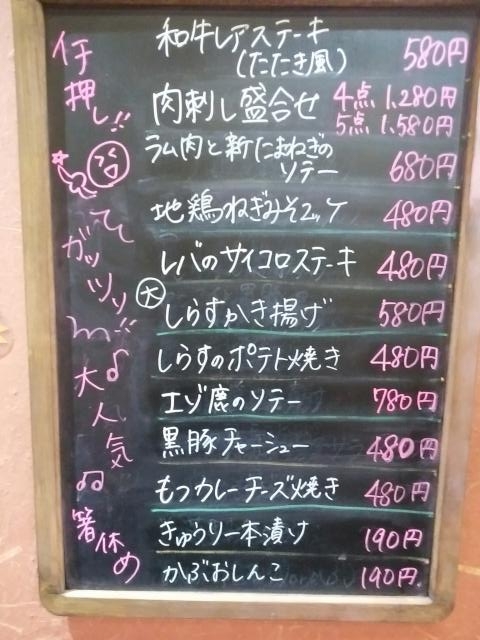 和牛レアステーキ
(たたき風) 580円
肉刺し盛合せ 4点 1.280円
5点 1.580円
ラム肉と新たまねぎの
ソテー 680円
地鶏ねぎみそユッケ 480円
レバのサイコロステーキ 480円
大 しらすかき揚げ 580円
しらすのポテト焼き 480円
エゾ鹿のソテー 780円
黒豚チャーシュー 480円
もつカレーチーズ焼き 480円
きゅうり一本漬け 190円
かぶおしんこ 190円
押し!!
ガッツリ!!
大人気
箸休め